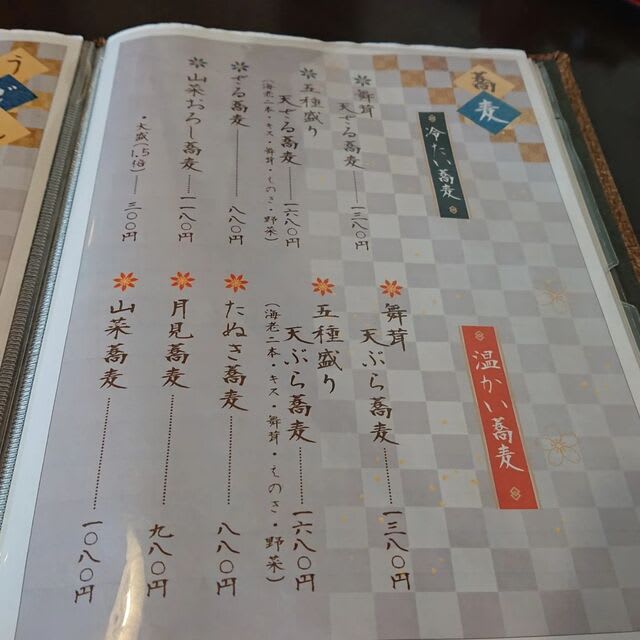 蕎麦
冷たい蕎麦
舞茸
天ざる蕎麦 一三八〇円
五種盛り
天ざる蕎麦 一六八〇円
(海老二本・キス・舞茸・しのさ・野菜)
ざる蕎麦 八八〇円
山菜おろし蕎麦 一一八〇円
・大盛(1.5倍) 三〇〇円
温かい蕎麦
舞茸
天ぷら蕎麦 一三八〇円
五種盛り
天ぷら蕎麦 一六八〇円
(海老二本・キス・舞茸・しのさ・野菜)
たぬき蕎麦 八八〇円
月見蕎麦 九八〇円
山菜蕎麦 一〇八〇円
うどん